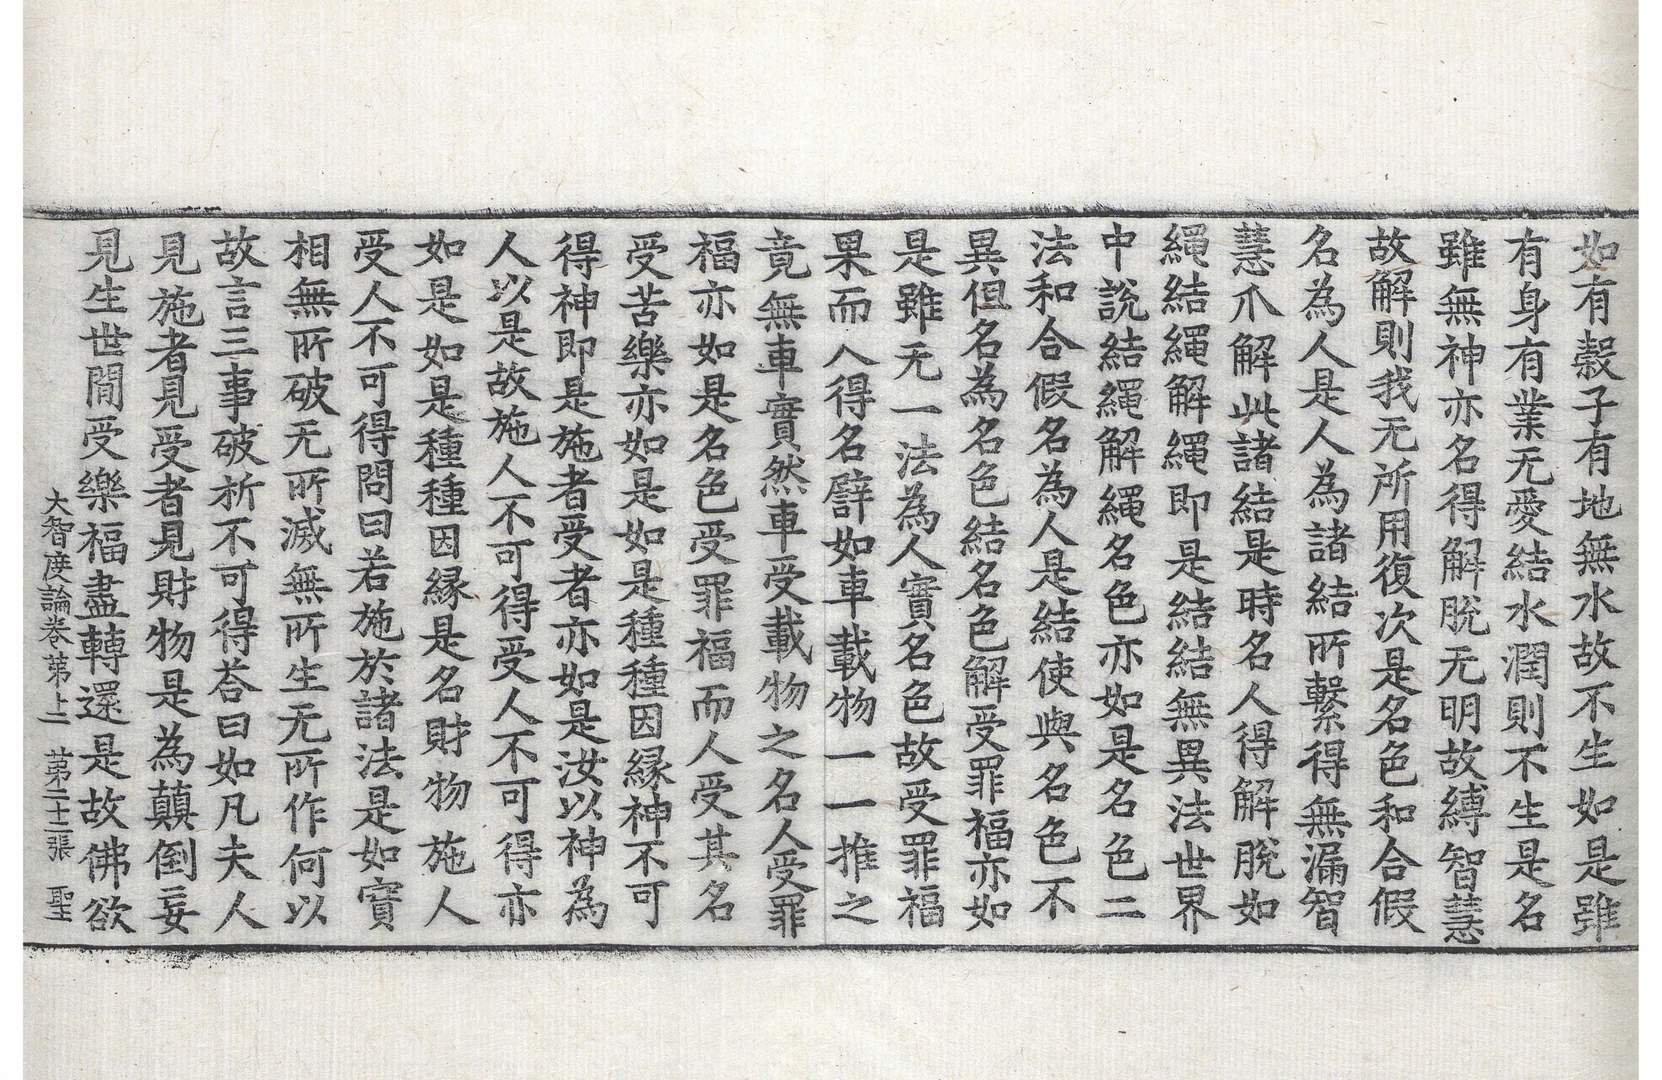 如有穀子有地無水故不生如是雖
有身有業无愛結水潤則不生是名
雖無神亦名得解脫无明故縛智慧
故解則我无所用復次是名色和合假
名為人是人為諸結所繫得無漏智
慧爪解此諸結是時名人得解脫如
繩結繩解繩即是結結無異法世界
中說結繩解繩名色亦如是名色二
法和合假名為人是結使與名色不
異但名為名色結名色解受罪福亦如
是雖无一法為人實名色故受罪福
果而人得名譬如車載物一一推之
竟無車實然車受載物之名人受罪
福亦如是名色受罪福而人受其名
受苦樂亦如是如是種種因緣神不可
得神即是施者受者亦如是汝以神為
人以是故施人不可得受人不可得亦
如是如是種種因緣是名財物施人
受人不可得問曰若施於諸法是如實
相無所破无所滅無所生无所作何以
故言三事破析不可得荅曰如凡夫人
見施者見受者見財物是為顛倒妄
見生世閒受樂福盡轉還是故佛欲
大智度論卷第十二 第二十二張 聖